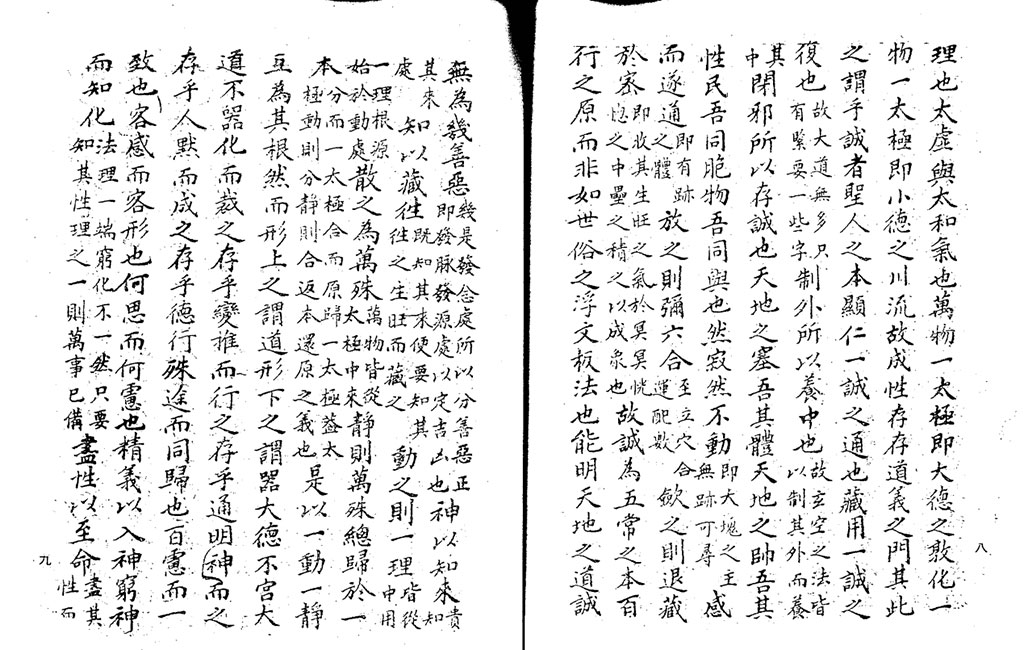 理也太虛與太和氣也萬物一太極即大德之敦化一
物一太極即小德之川流故成性存存道義之門其此
之謂乎誠者聖人之本顯仁一誠之通也藏用一誠之
復也故大道無多只有緊要一些字制外所以養中也故玄空之法皆以制其外而養
其中閉邪所以存誠也天地之塞吾其體天地之帥吾其
性民吾同胞物吾同與也然寂然不動即大塊之主無跡可尋感
而遂通即有跡之體放之則彌六合至立穴運配數合歛之則退藏
於密即收其生旺之氣於冥冥恍惚之中壘之積之以成象也故誠為五常之本百
行之原而非如世俗之浮文板法也能明天地之道誠
八
無為幾善惡幾是發念處所以分善惡正即發脉發源處以定吉凶也神以知來貴知
其來處知以藏往既知其來便要知其往之生旺而藏之動之則一理皆從中用
一理根源始於動處散之為萬殊萬物皆從太極中來靜則萬殊總歸於一
本分而一太極合而原歸一太極蓋太極動則分靜則合返本還原之義也是以一動一靜
互為其根然而形上之謂道形下之謂器大德不宫大
道不器化而裁之存乎變推而行之存乎通明神而之
存乎人默而成之存乎德行殊途而同歸也百慮而一
致也容感而客形也何思而何慮也精義以入神窮神
而知化法理一端窮化不一然只要知其性理之一則萬事已備盡性以至命盡其性而
九